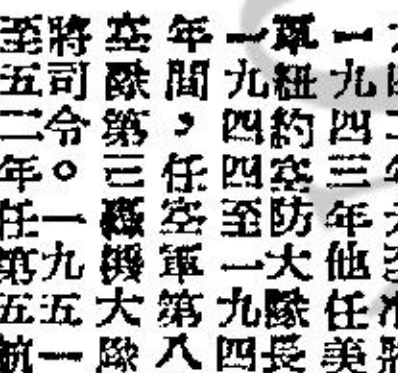 一九四三年他任美
軍紐約空防大隊長
一九四四至一九四
年間，任空軍第八
空隊第三大隊
將司令。一九五一
至五二年任第五航